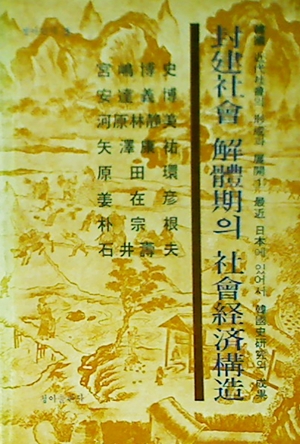 韓國 近代社會의 形成과 展開 1·最近 日本에 있어서 韓國史硏究의 成果
封建社會 解體期의 社會経済構造
宮嶋博史
安達義博
河原林静美
矢澤康祐
原田環
姜在彦
朴宗根
石井壽夫
청아출판사